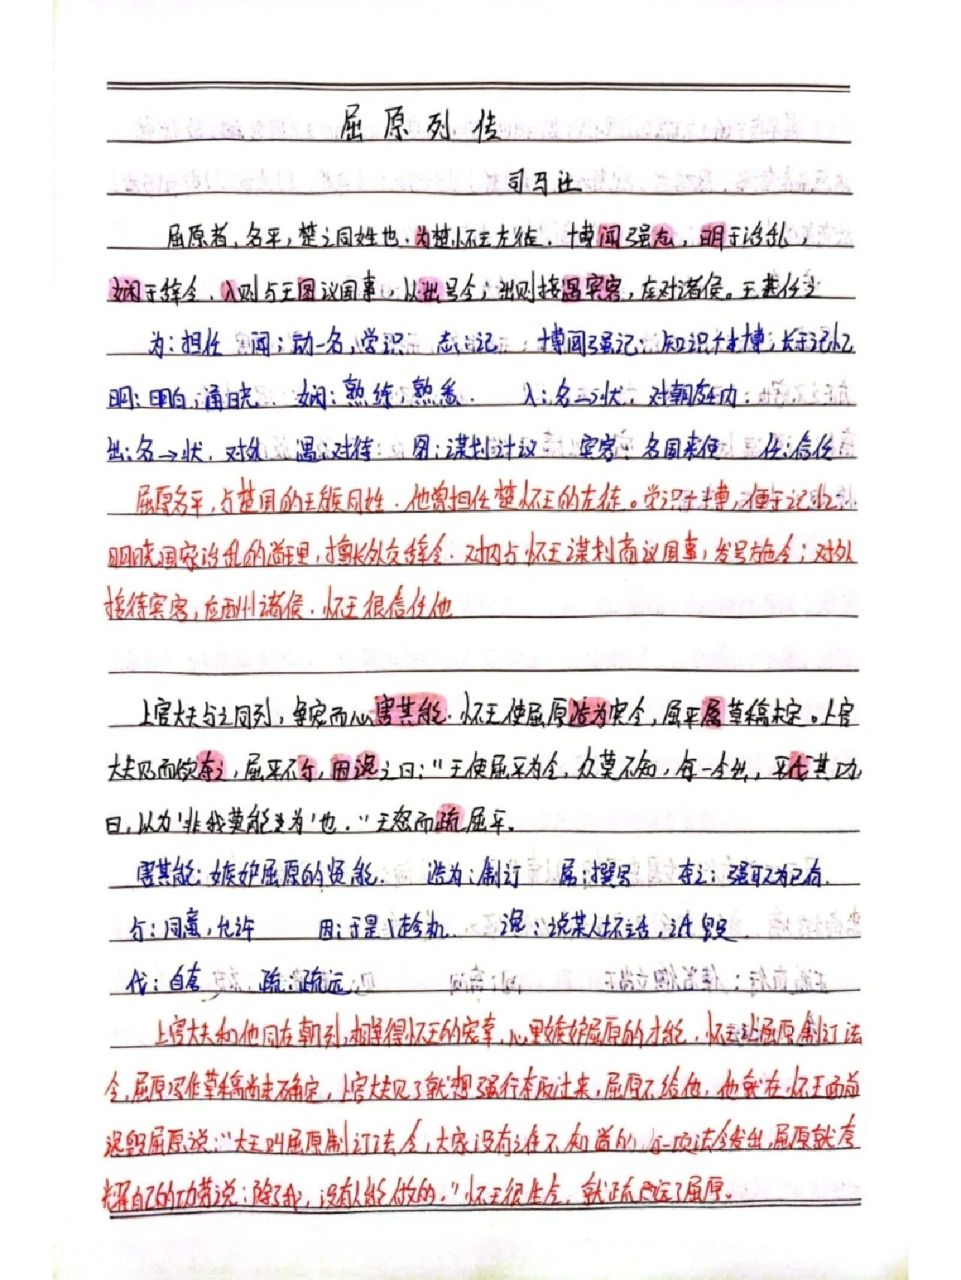 屈原列传
司马迁
屈原者，名平，楚之同姓也，为楚怀王左徒。博闻强志，明于治乱，
娴于辞令，入则与王图议国事，以出号令；出则接遇宾客，应对诸侯。王甚任之
为：担任 闻：动→名，学识 志：记 博闻强记：知识广博，长于记忆
明：明白，通晓 娴：熟练 熟悉 入：名→状，对朝廷内：
出：名→状，对外 遇：对待 图：谋划计议 宾客：各国来使 任：信任
屈原名平，与楚国的王族同姓。他曾担任楚怀王的左徒。学识广博，便于记忆，
明晓国家治乱的道理，擅长外交辞令。对内与怀王谋划商议国事，发号施令；对外
接待宾客，应酬诸侯。怀王很信任他
上官大夫与之同列，争宠而心害其能。怀王使屈原造为宪令，屈平属草稿未定。上官
大夫见而欲夺之，屈平不与，因谗之曰：“王使屈平为令，众莫不知，每一令出，平伐其功
曰，以为‘非我莫能为’也。”王怒而疏屈平。
害其能：嫉妒屈原的贤能． 造为：制订 属：撰写 夺之：强取为已有．
与：同意，允许 因：于是\趁机． 谗：说某人坏话，诋毁
伐：自夸 疏：疏远
上官大夫和他同在朝列，想争得怀王的宠幸，心里嫉妒屈原的才能．怀王让屈原制订法
令，屈原写作草稿尚未确定，上官大夫见了就想强行夺取过来，屈原不给他，他就在怀王面前
谗毁屈原说：“大王叫屈原制订法令，大家没有谁不知道的，每一项法令发出，屈原就夸
耀自己的功劳说：除了我，没有人能做的．”怀王很生气，就疏远了屈原．